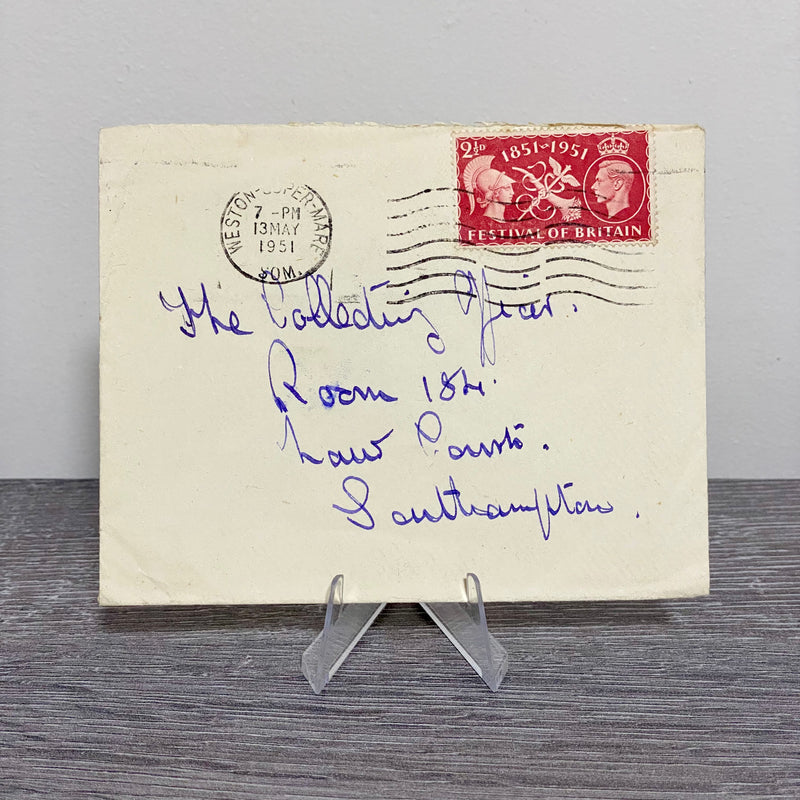 WESTON-SUPER-MARE
7 - PM
13 MAY
1951
SOM.
2½D
1851-1951
FESTIVAL OF BRITAIN
The Collecting Officer.
Room 184.
Law Courts.
Southampton.